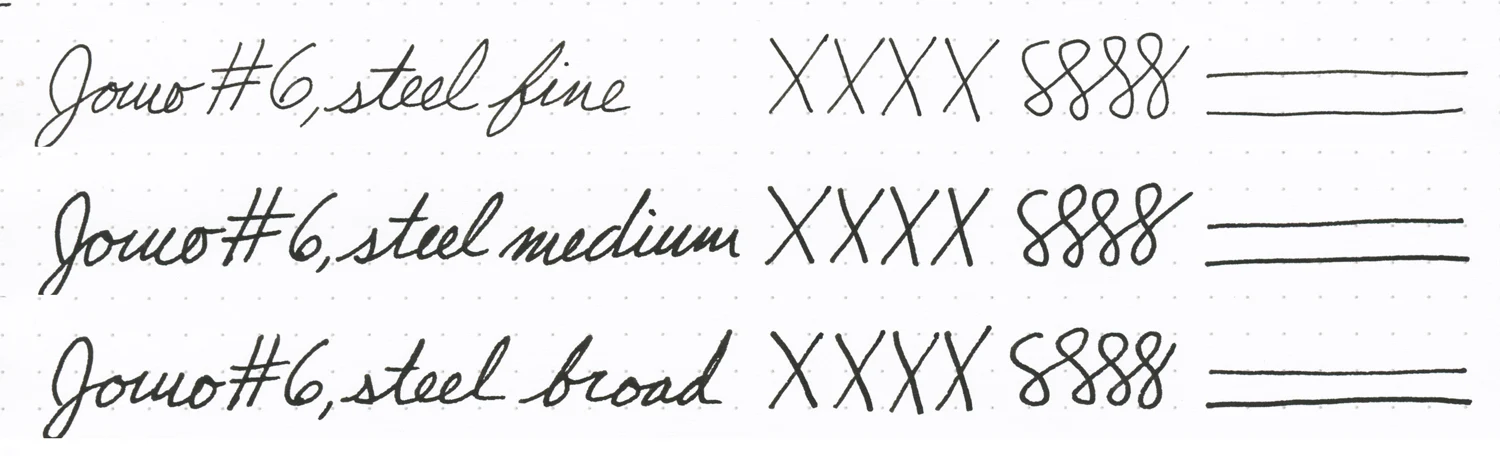 Jowo #6, steel fine XXXX 8888
Jowo #6, steel medium XXXX 8888
Jowo #6, steel broad XXXX 8888